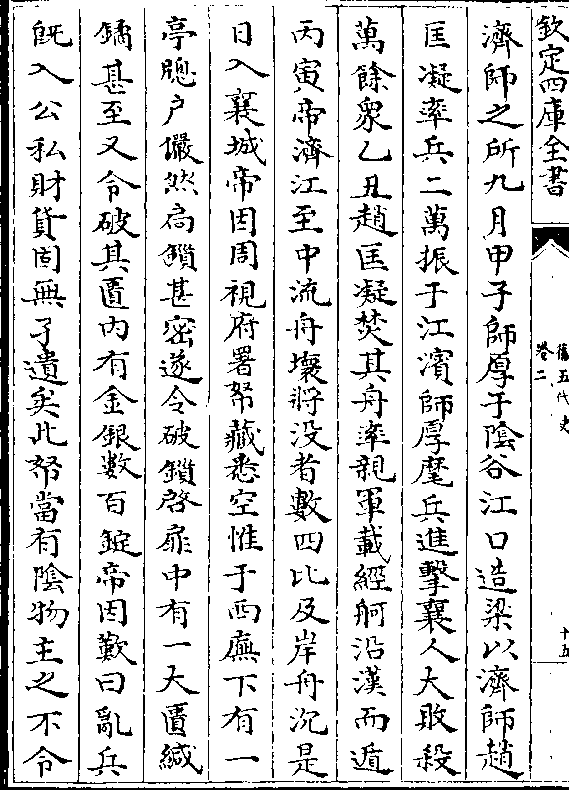 欽定四庫全書
舊五代史
卷二
十五
濟師之所九月甲子師厚于陰谷江口造梁以濟師趙
匡凝率兵二萬振于江濱師厚麾兵進擊襄人大敗殺
萬餘衆乙丑趙匡凝焚其舟率親軍載經舸沿漢而遁
丙寅帝濟江至中流舟壞將没者數四比及岸舟沉是
日入襄城帝因周視府署帑藏悉空惟于西廡下有一
亭窻户儼然扃鎻甚密遂令破鎻啓扉中有一大匱緘
鐍甚至又令破其匱内有金銀數百錠帝因歎曰亂兵
旣入公私財貨固無孑遺矣此帑當有陰物主之不令